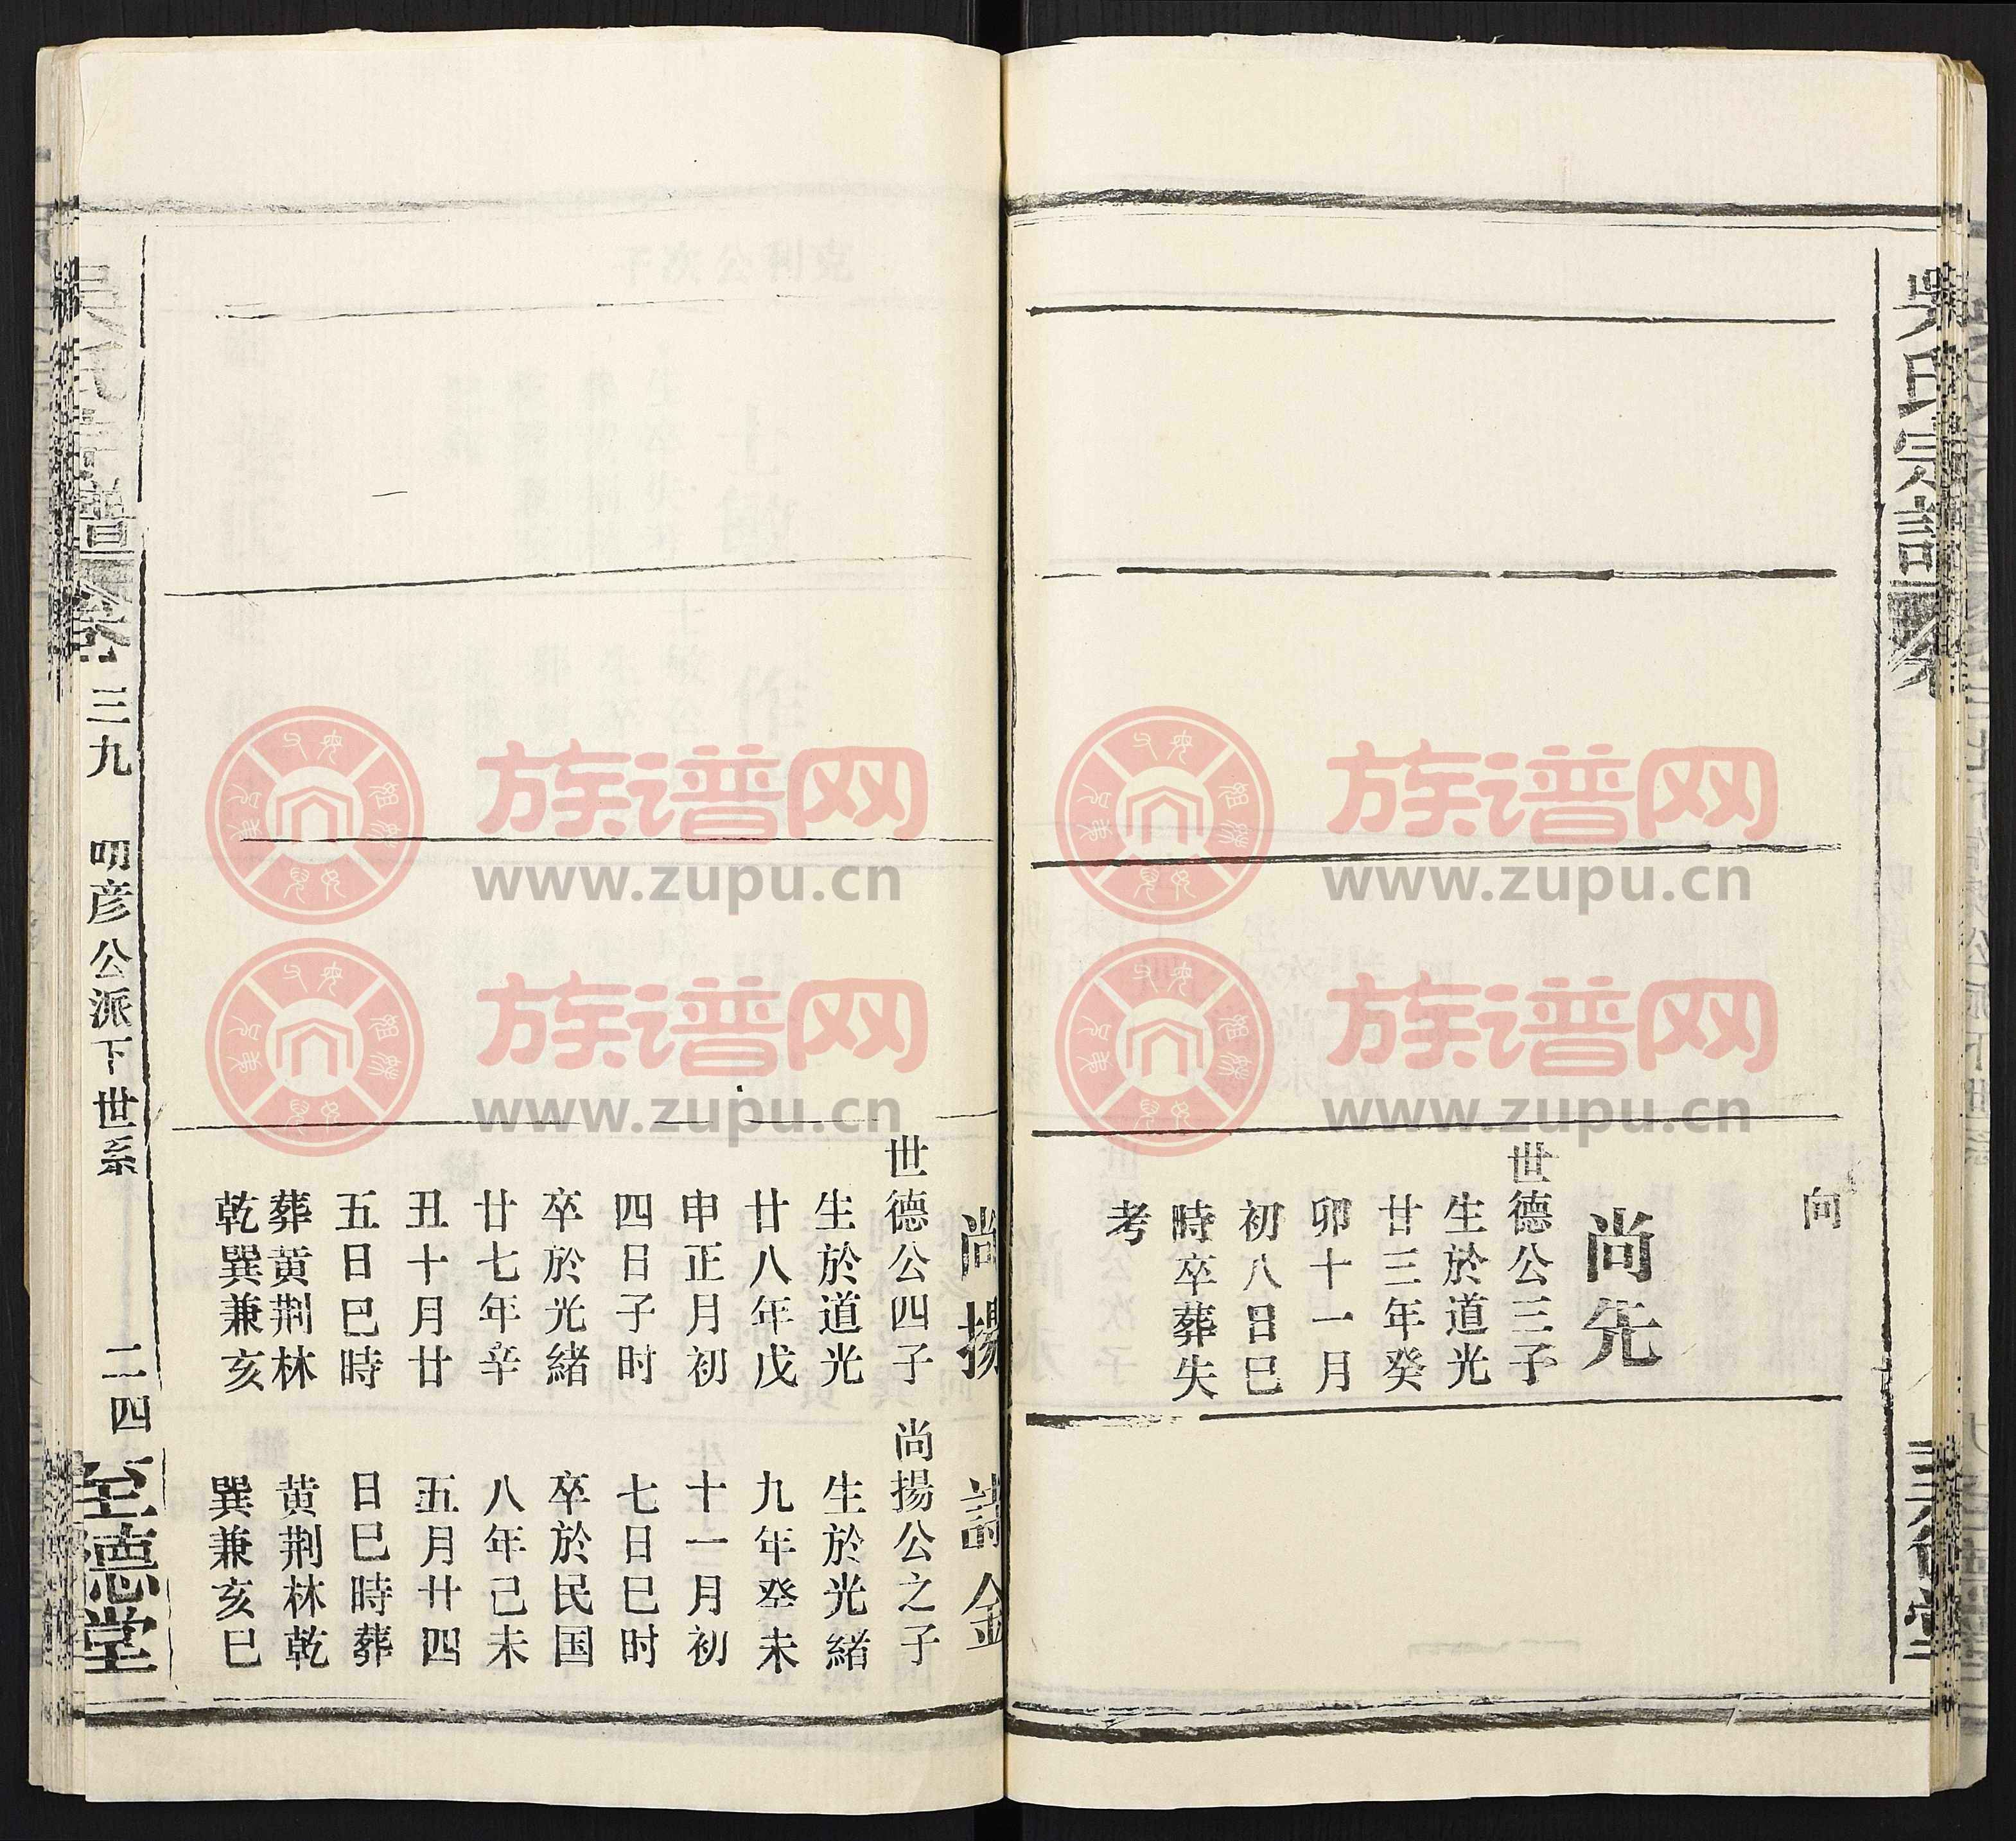 吳氏宗譜 卷
向
尚先
世德公三子
生於道光
廿三年癸
卯十一月
初八日巳
時卒葬失
考
尚揚
世德公四子
生於道光
廿八年戊
申正月初
四日子时
卒於光緒
廿七年辛
丑十月廿
五日巳時
葬黄荆林
乾巽兼亥
詩金
尚揚公之子
生於光緒
九年癸未
十一月初
七日巳时
卒於民国
八年己未
五月廿四
日巳時葬
黄荆林乾
巽兼亥巳
吳氏宗譜 卷 三九 明彦公派下世系 二四 至德堂
族谱网
www.zupu.cn
族谱网
www.zupu.cn
族谱网
www.zupu.cn
族谱网
www.zupu.cn